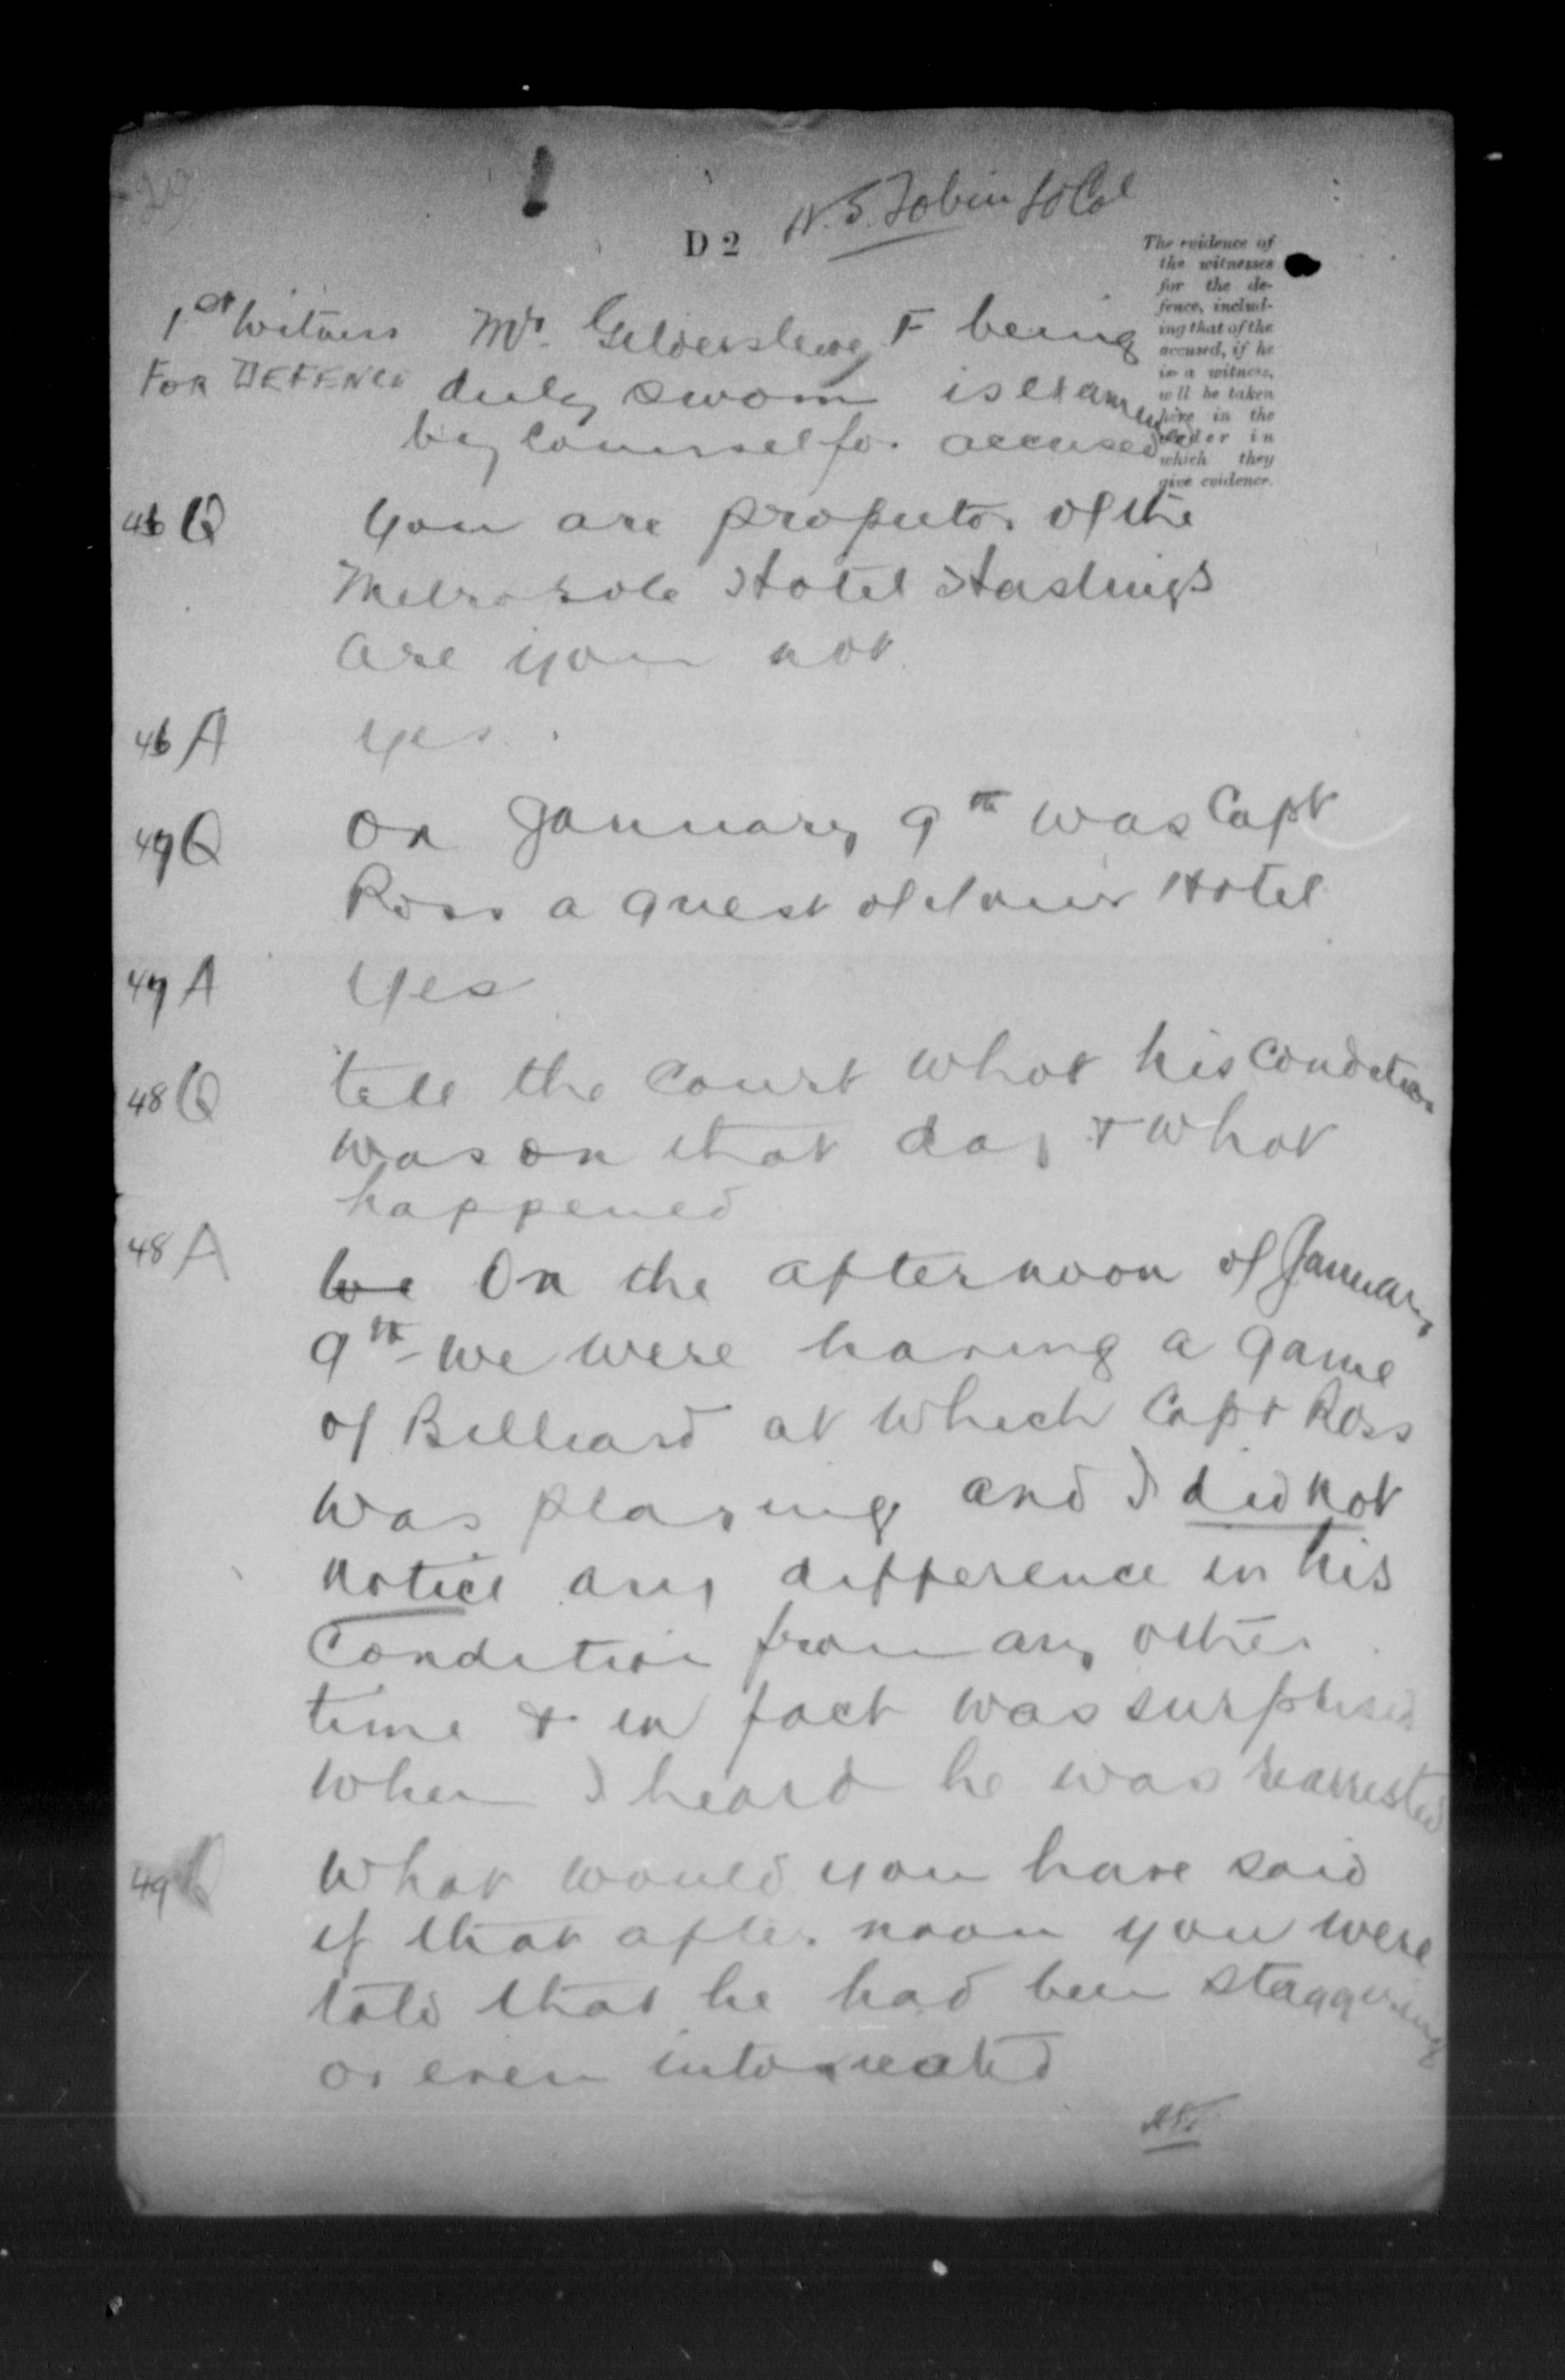 H. S. Tobin Lt Col
D 2
The evidence of
the witnesses
for the de-
fence, includ-
ing that of the
accused, if he
is a witness,
will be taken
here in the
order in
which they
give evidence.
1st Witness
FOR DEFENCE
Mr. Gildersleve, F being
duly sworn is examined
by Counsel for accused
46 Q You are propietor of the
Hotel Hastings
are you not
46 A yes.
47 Q On January 9th was Capt
Ross a guest of your Hotel
47 A Yes
48 Q tell the Court what his condition
was on that day & what
happened
48 A We On the afternoon of January
9th we were having a game
of Billiard at which Capt Ross
was playing and I did not
notice any difference in his
Condition from any other
time & in fact was surprised
when I heard he was rearrested
49 Q What would you have said
if that after noon you were
told that he had been staggering
or even intoxicated
HST